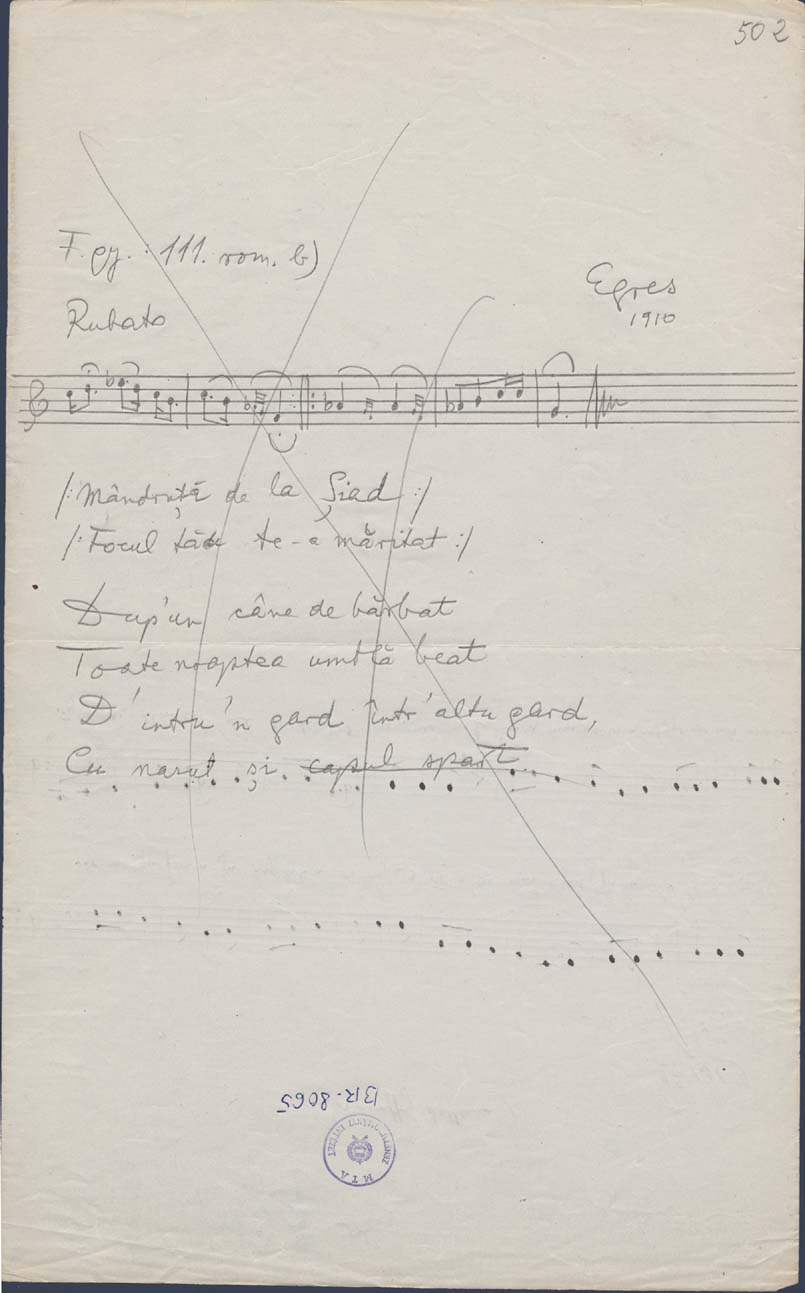 502
F. gy. : 111. rom. b)
Egres
1910
Rubato
/: Mândruță de la Șiad :/
/: Focul tău te-a măritat :/
Dup'un câne de bărbat
Toate noaptea umblă beat
D'intru'n gard într'altu gard,
Cu nasul și capul spart
BR-8065
MTA
ZENETUDOMÁNYI INTÉZET